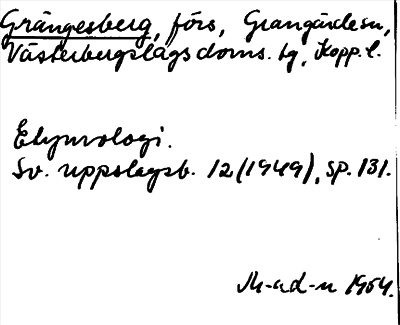 Grängesberg, förs, Grangärdesn,
Västerbergslags doms. tg, Kopp. l.
Etymologi.
Sv. uppslagsb. 12 (1949), sp. 131.
M-ad-n 1954.